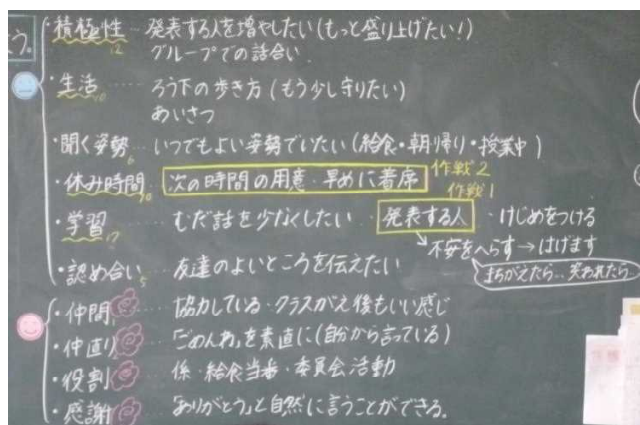 う。
・積極性 … 発表する人を増やしたい(もっと盛り上げたい!)
12
グループでの話合い
・生活 … ろう下の歩き方(もう少し守りたい)
10
あいさつ
・聞く姿勢 … いつでもよい姿勢でいたい(給食・朝帰り・授業中)
6
・休み時間 次の時間の用意・早めに着席 作戦2
10
作戦1
・学習 … むだ話を少なくしたい 発表する人 ・けじめをつける
17
↘不安をへらす→はげます
まちがえたら…笑われたら
・認め合い 友達のよいところを伝えたい
5
・仲間 協力している・クラスがえ後もいい感じ
・仲直り 「ごめんね」を素直に(自分から言っている)
・役割 係・給食当番・委員会活動
・感謝 「ありがとう」と自然に言うことができる。